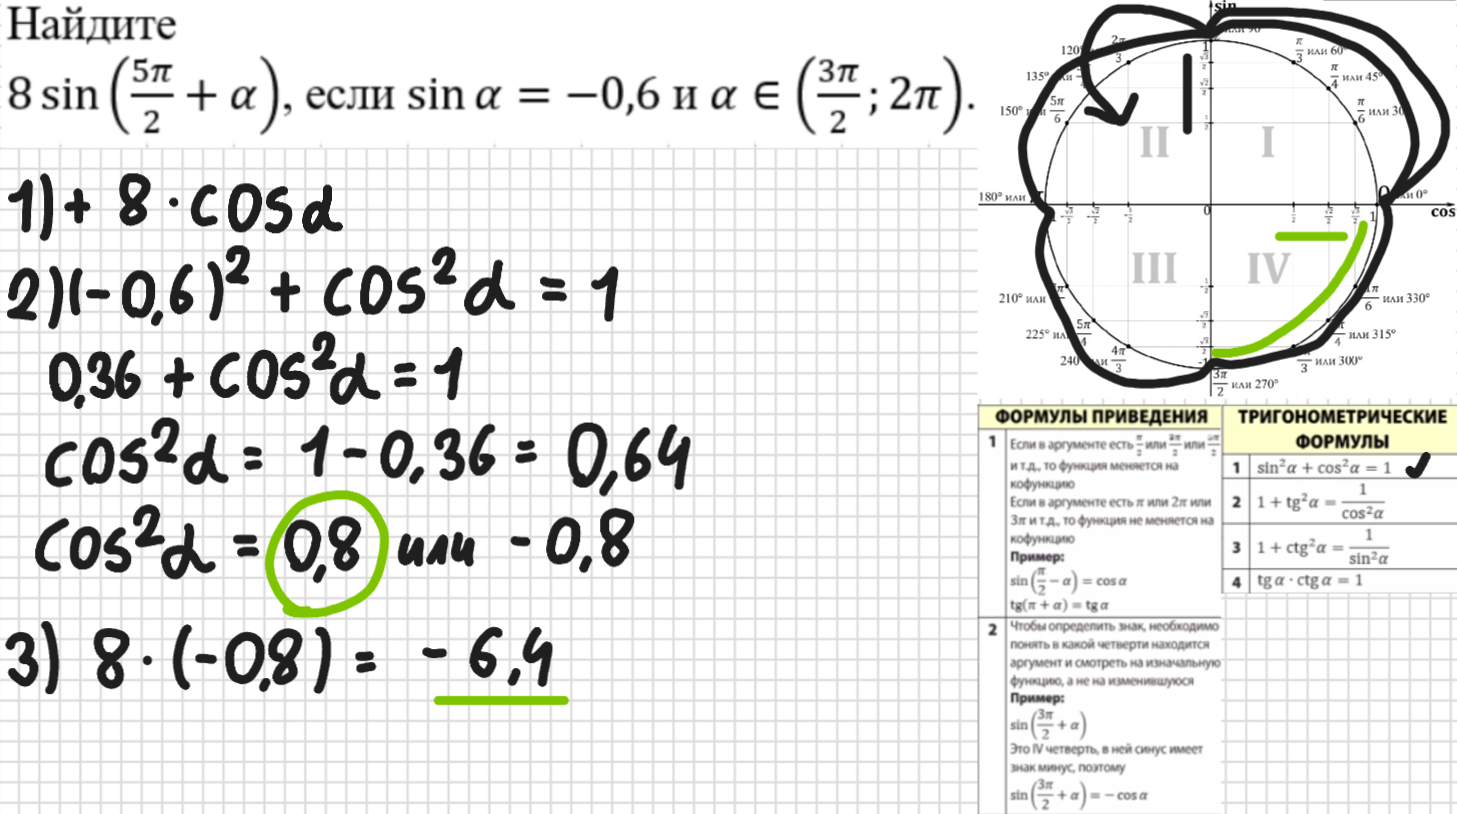 Найдите
8 sin (5π/2 + α), если sin α = −0,6 и α ∈ (3π/2 ; 2π).
1) + 8 · cosα
2) (-0,6)² + cos²α = 1
0,36 + cos²α = 1
cos²α = 1 - 0,36 = 0,64
cos²α = 0,8 или - 0,8
3) 8 · (-0,8) = - 6,4
sin
или 90
120°
2π/3
π/3 или 60°
135° или
π/4 или 45°
150° или 5π/6
π/6 или 30
II
I
180° или π
0
или 0°
cos
1
III
IV
210° или
π/6 или 330°
225° или 5π/4
π/4 или 315°
240° или 4π/3
π/3 или 300°
-1
3π/2 или 270°
ФОРМУЛЫ ПРИВЕДЕНИЯ
1
Если в аргументе есть π/2 или 3π/2 или 5π/2
и т.д., то функция меняется на
кофункцию
Если в аргументе есть π или 2π или
3π и т.д., то функция не меняется на
кофункцию
Пример:
sin (π/2 − α) = cos α
tg(π + α) = tg α
2
Чтобы определить знак, необходимо
понять в какой четверти находится
аргумент и смотреть на изначальную
функцию, а не на изменившуюся
Пример:
sin (3π/2 + α)
Это IV четверть, в ней синус имеет
знак минус, поэтому
sin (3π/2 + α) = − cos α
ТРИГОНОМЕТРИЧЕСКИЕ
ФОРМУЛЫ
1 sin²α + cos²α = 1 ✓
2 1 + tg²α = 1/cos²α
3 1 + ctg²α = 1/sin²α
4 tg α · ctg α = 1